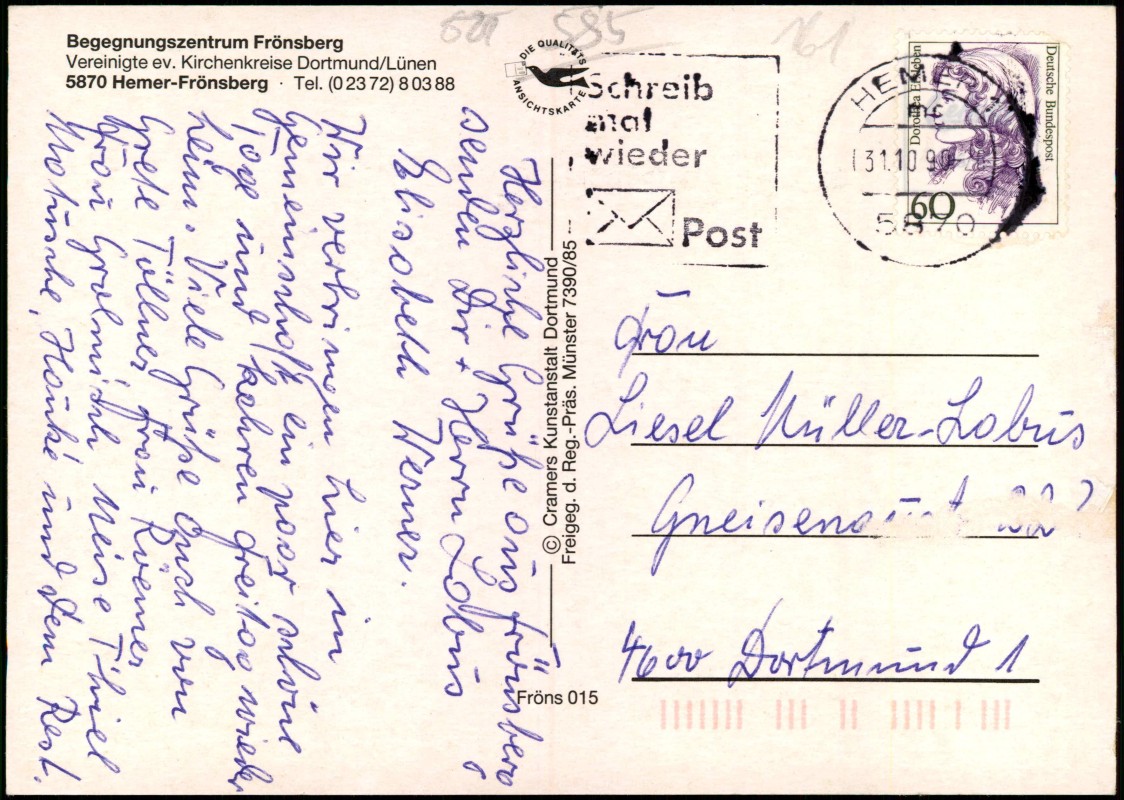 521 585 161
Begegnungszentrum Frönsberg
Vereinigte ev. Kirchenkreise Dortmund/Lünen
5870 Hemer-Frönsberg · Tel. (0 23 72) 8 03 88
DIE QUALITÄTS
ANSICHTSKARTE
Schreib
mal
wieder
Post
HEMER 1
31.10.90
5870
Deutsche Bundespost
Dorothea Erxleben
60
Herzliche Grüße aus Frönsberg
senden Dir + Herrn Lobus
Elisabeth Werner.
Wir verbringen hier in
Gemeinschaft ein paar schöne
Tage und kehren Freitag wieder
heim. Viele Grüße auch von
Grete Töllner, Frau Römer
Frau Gralmich Neise Thiel
Motuschke, Hanke und dem Rest.
© Cramers Kunstanstalt Dortmund
Freigeg. d. Reg.-Präs. Münster 7390/85
Fröns 015
Frau
Liesel Müller-Lobus
Gneisenaust 22
4600 Dortmund 1